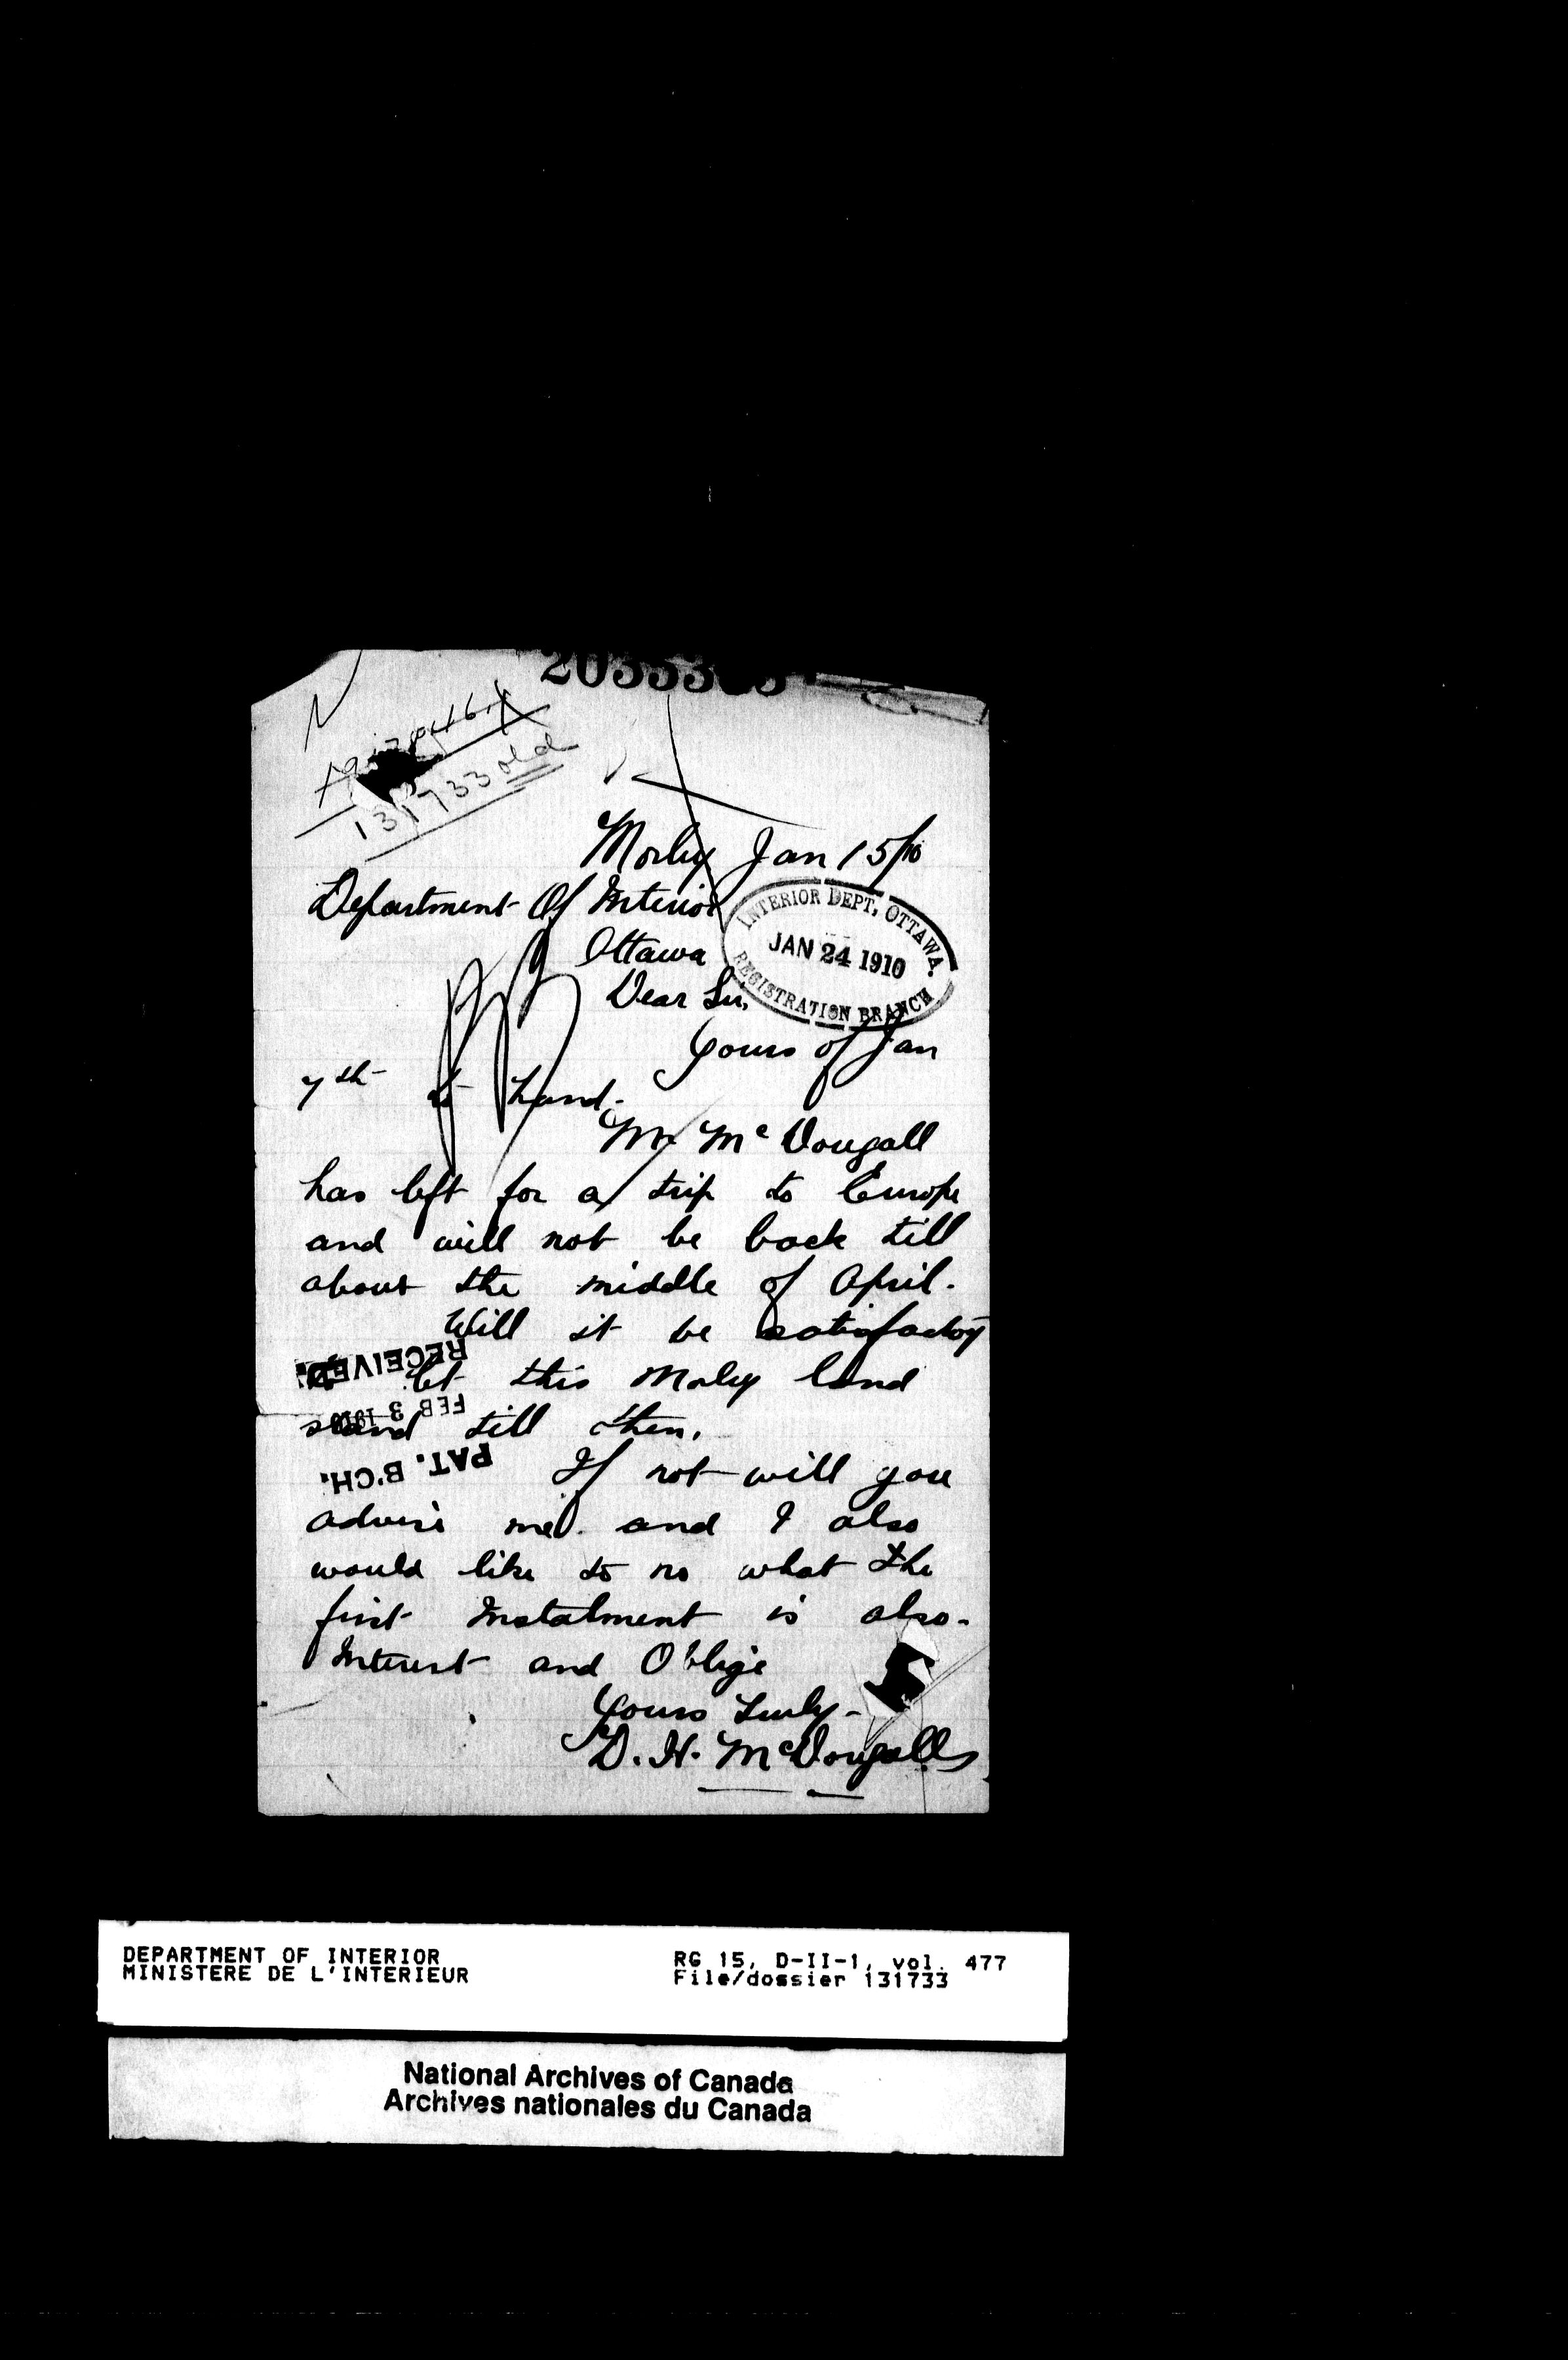 N
131733 old
Morley Jan 15/10
Department Of Interior
INTERIOR DEPT, OTTAWA.
JAN 24 1910
REGISTRATION BRANCH
Ottawa
Dear Sir,
Yours of Jan
7th to hand.
Mr McDougall
has left for a trip to Europe
and will not be back till
about the middle of April.
Will it be satisfactory
RECEIVED
let this Morley land
FEB 3 1910
stand till then.
PAT. B'CH.
If not will you
advise me. and I also
would like to no what the
first Instalment is also.
Interest and Oblige
Yours Truly
D. H. McDougall
DEPARTMENT OF INTERIOR RG 15, D-II-1, vol. 477
MINISTERE DE L'INTERIEUR File/dossier 131733
National Archives of Canada
Archives nationales du Canada